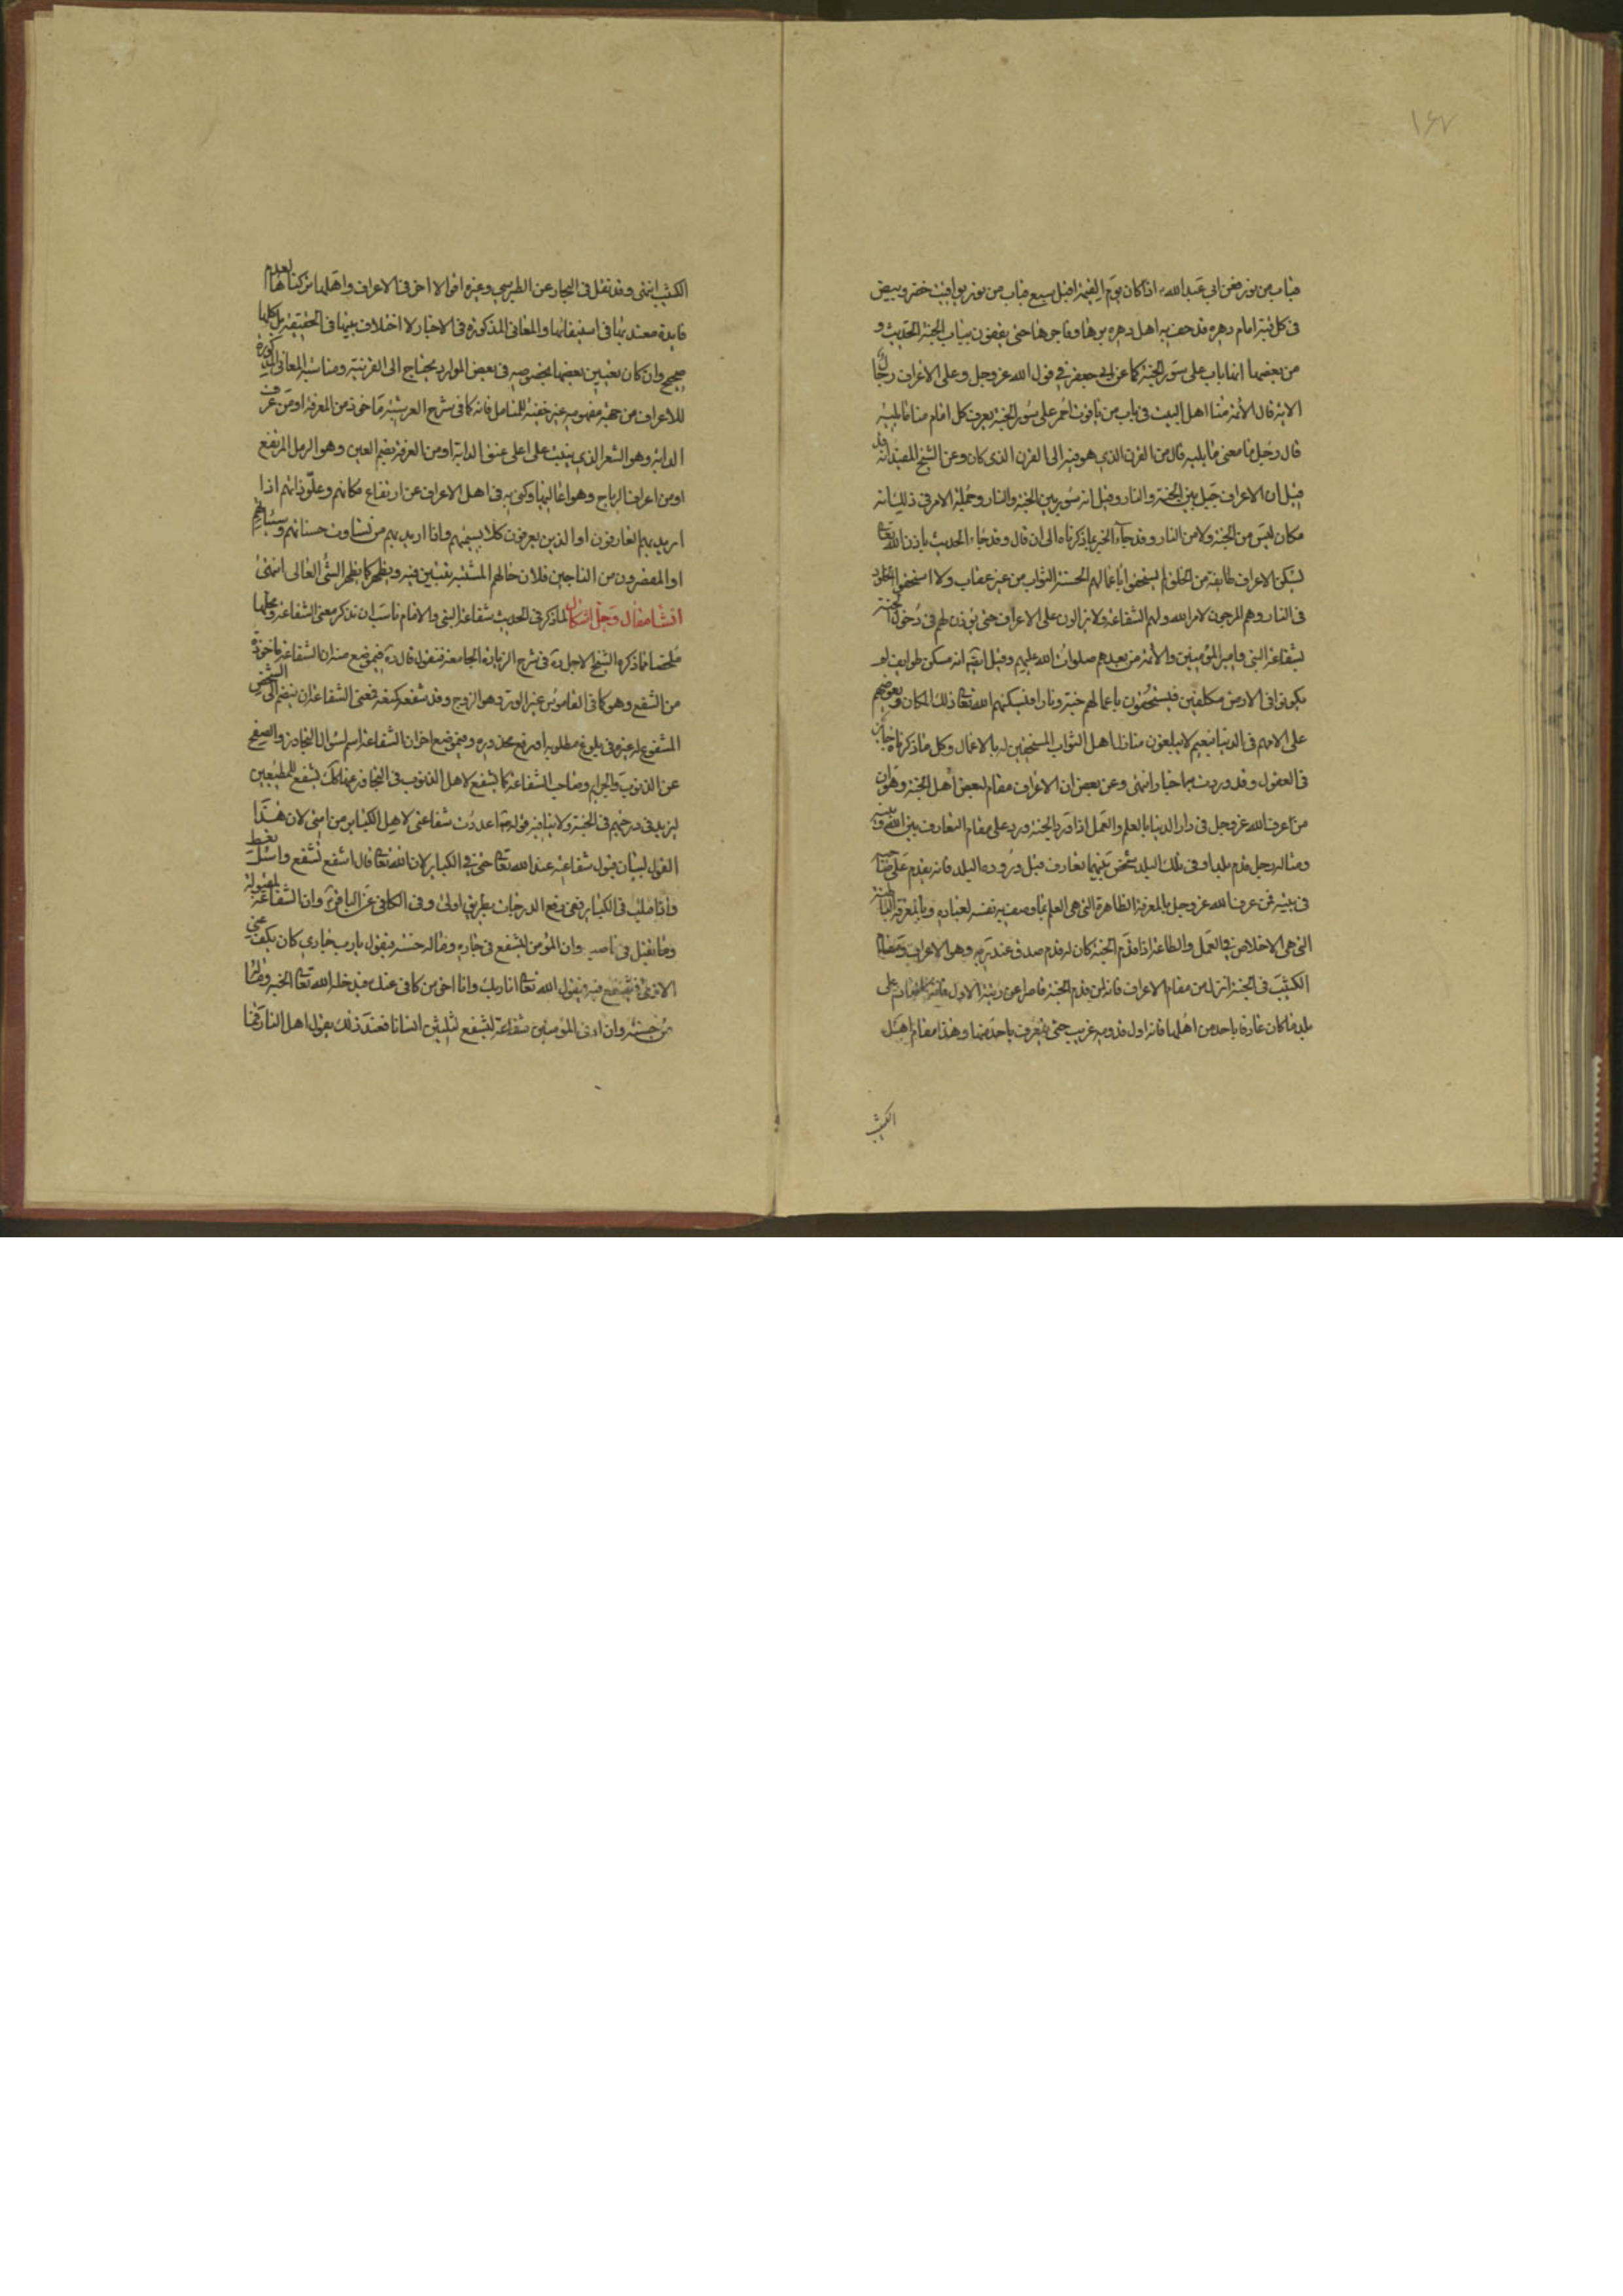 ١٦٧
قباب من نور فعن ابي عبد الله ع اذا كان يوم القيمة اقبل سبع قباب من نور يواقيت خضر وبيض
في كل قبة امام دهره قد حف به اهل دهره برها وفاجرها حتى يقفون بباب الجنة الحديث و
من بعضها انها باب على سور الجنة كما عن ابي جعفر في قول الله عز وجل وعلى الاعراف رجال
الاية قال الأئمة منا اهل البيت في باب من ياقوت احمر على سور الجنة يعرف كل امام منا ما يليه
قال رجل ما معنى ما يليه قال من القرن الذي هو فيه الى القرن الذي كان وعن الشيخ المفيد انه قد
قيل ان الاعراف جبل بين الجنة والنار وقيل انه سور بين الجنة والنار وجملة الامر في ذلك انه
مكان ليس من الجنة ولا من النار وقد جاء الخبر بما ذكرناه الى ان قال وقد جاء الحديث بان الله تعالى
يسكن الاعراف طايفة من الخلق لم يستحقوا باعمالهم الحسنة الثواب من غير عقاب ولا استحقوا الخلود
في النار وهم المرجون لامر الله ولهم الشفاعة ولا يزالون على الاعراف حتى يؤذن لهم في دخول الجنة
بشفاعة النبي وامير المؤمنين والأئمة من بعدهم صلوات الله عليهم وقيل ايضا انه مسكن طوايف لم
يكونوا في الارض مكلفين فيستحقون باعمالهم جنة ونارا فيسكنهم الله تعالى ذلك المكان ويعوضهم
على الامهم في الدنيا بنعيم لا يبلغون منازل اهل الثواب المستحقين له بالاعمال وكل ما ذكرناه جائز
في العقول وقد وردت بها اخبار انتهى وعن بعض ان الاعراف مقام لبعض اهل الجنة وهو ان
من اعرف الله عز وجل في دار الدنيا بالعلم والعمل اذا ورد الجنة ورد على مقام التعارف بين الله وبينه
ومثاله رجل قدم بلدا وفي تلك البلد شخص بينهما تعارف قبل وروده البلد فانه يقدم على صاحبه
في بيته فمن عرف الله عز وجل بالمعرفة الظاهرة التي هي العلم بما وصف به نفسه لعباده وبالمعرفة الباطنة
التي هي الاخلاص في العمل والطاعة اذا قدم الجنة كان له قدم صدق عند ربه وهو الاعراف ومقام
الكثيب في الجنة انزل من مقام الاعراف فانه لمن قدم الجنة قاصرا عن رتبة الاول فانه كالقادم على
بلد ما كان عارفا باحد من اهلها فانه اول قدومه غريب حتى يتعرف باحد منها وهذا مقام اهل
الكثيب
الكثيب انتهى وقد نقل في البحار عن الطبرسي وغيره اقوالا اخر في الاعراف واهلها تركناها لعدم
فايدة معتد بها في استيفائها والمعاني المذكورة في الاخبار لا اختلاف بينها في الحقيقة بل كلها
صحيح وان كان تعيين بعضها بخصوصه في بعض الموارد يحتاج الى القرينة ومناسبة المعاني المذكورة
للاعراف من جهة مفهومه غير خفية للمتامل فانه كما في شرح العرشية ماخوذ من المعرفة او من عرف
الدابة وهو الشعر الذي ينبت على اعلى عنق الدابة او من العرفة بضم العين وهو الرمل المرتفع
او من اعراف الرياح وهو اعاليها وكنى به في اهل الاعراف عن ارتفاع مكانهم وعلو ذاتهم اذا
اريد بهم العارفون او الذين يعرفون كلا بسيمهم واذا اريد بهم من تساوت حسناتهم وسيئاتهم
او المقصرون من الناجين فلان حالهم المشتبه يتبين فيه ويظهر كما يظهر الشئ العالى انتهى
انشاء مقال وحل اشكال لما ذكر في الحديث شفاعة النبي والامام ناسب ان نذكر معنى الشفاعة ومحلها
ملخصا مما ذكره الشيخ الاجل ره في شرح الزيارة الجامعة فنقول قال ره في موضع منه ان الشفاعة ماخوذة
من الشفع وهو كما في القاموس غير الوتر وهو الزوج وقد شفعه كمنعه فمعنى الشفاعة ان ينضم الى الشخص
المشفوع له غيره في بلوغ مطلوبه او رفع محذوره وفي موضع اخر ان الشفاعة اسم لسؤال التجاوز والصفح
عن الذنوب والجرايم وصاحب الشفاعة كما يشفع لاهل الذنوب في التجاوز عنها كذلك يشفع للمطيعين
ليزيد في درجتهم في الجنة ولا ينافيه قوله ص اعددت شفاعتي لاهل الكباير من امتي لان هذا
القول لبيان قبول شفاعته عند الله تعالى حتى في الكباير لان الله تعالى قال اشفع تشفع واسئل تعط
واذا قبلت في الكباير ففي رفع الدرجات بطريق اولى وفي الكافي عن الباقر ع وان الشفاعة لمقبولة
وما تقبل في ناصب وان المؤمن ليشفع في جاره وما له حسنة فيقول يارب جاري كان يكف عني
الاذى فيشفع فيه فيقول الله تعالى انا ربك وانا احق من كافى عنك فيدخله الله تعالى الجنة وما له
من حسنة وان ادنى المؤمنين شفاعة ليشفع لثلثين انسانا فعند ذلك يقول اهل النار فما لنا